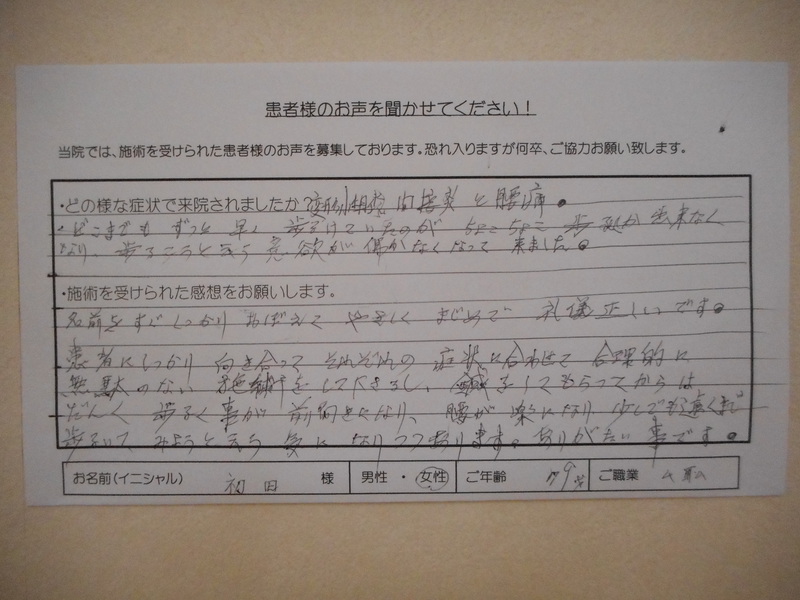 患者様のお声を聞かせてください！
当院では、施術を受けられた患者様のお声を募集しております。恐れ入りますが何卒、ご協力お願い致します。
・どの様な症状で来院されましたか？変形性股関節炎と腰痛。
・どこまでもずっと早く歩けていたのがちょこちょこ歩きしか出来なく
なり、歩こうと云う意欲が湧かなくなって来ました。
・施術を受けられた感想をお願いします。
名前をすぐしっかりおぼえてやさしくまじめで礼儀正しいです。
患者にしっかり向き合ってそれぞれの症状に合わせて合理的に
無駄のない施術をして下さるし、鍼をしてもらってからは
だんだん歩るく事が前向きになり、腰が楽になり、少しでも遠くまで
歩るいてみようと云う気になりつつあります。ありがたい事です。
お名前（イニシャル） 初田 様 男性 ・ 女性 ご年齢 79才 ご職業